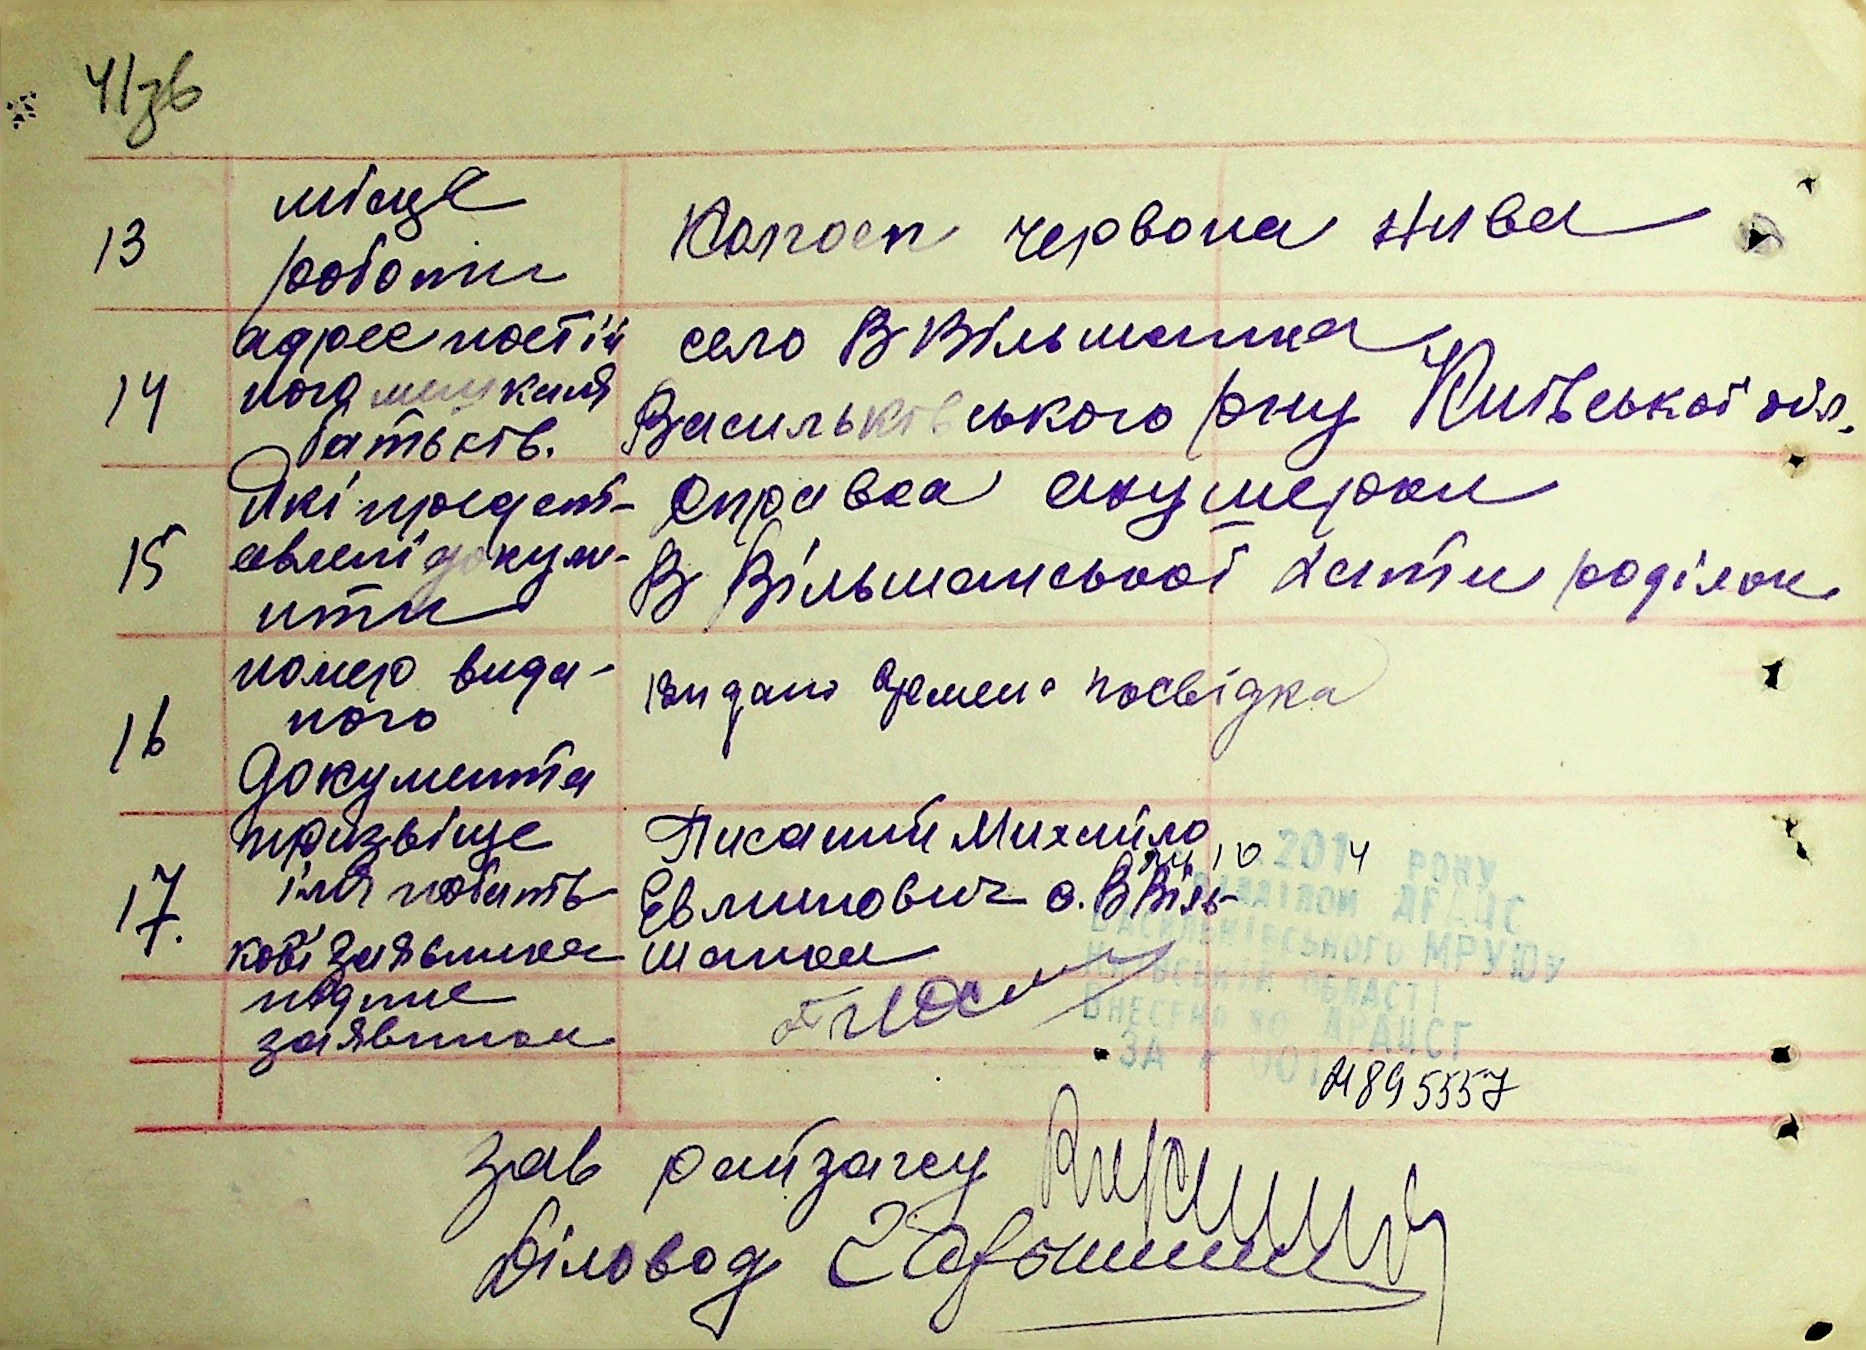 41зв
13
місце
роботи
Колгосп червона Нива
14
адрес постій
ного мешканя
батьків.
село В Вільшанка
Васильківського рну Київської обл.
15
Які предст-
авлені докум-
нти
Справка акушерки
В Вільшанської хати роділок
16
номер вида-
ного
документа
видано времено посвідка
17.
призвіще
імя побать
кові заявника
Писаний Михайло
Евминович с. В Віль-
шанка
подпис
заявника
2014 РОКУ
ВІДДІЛОМ ДРАЦС
ВАСИЛЬКІВСЬКОГО МРУЮ
КИЇВСЬКІЙ ОБЛАСТІ
ВНЕСЕНО ДО ДРАЦСГ
ЗА № 001
4895557
Зав райзагсу
Діловод